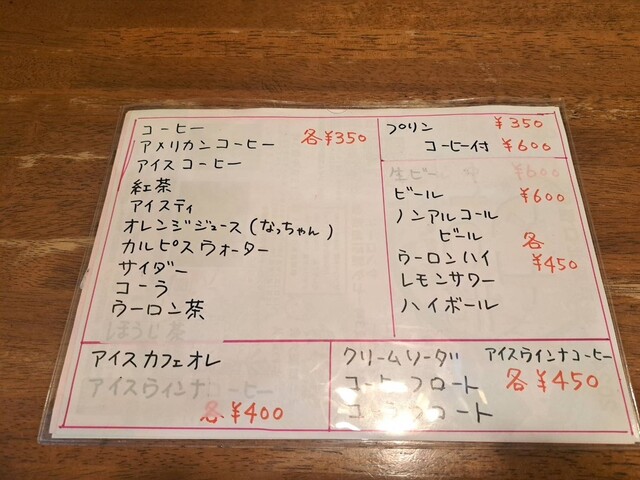 コーヒー
アメリカンコーヒー 各¥350
アイスコーヒー
紅茶
アイスティ
オレンジジュース(なっちゃん)
カルピスウォーター
サイダー
コーラ
ウーロン茶
ほうじ茶
アイスカフェオレ
アイスウィンナコーヒー
各¥400
プリン ¥350
コーヒー付 ¥600
生ビール 中 ¥600
ビール ¥600
ノンアルコール
ビール 各
ウーロンハイ ¥450
レモンサワー
ハイボール
クリームソーダ アイスウィンナコーヒー
コーヒーフロート 各¥450
コーラフロート